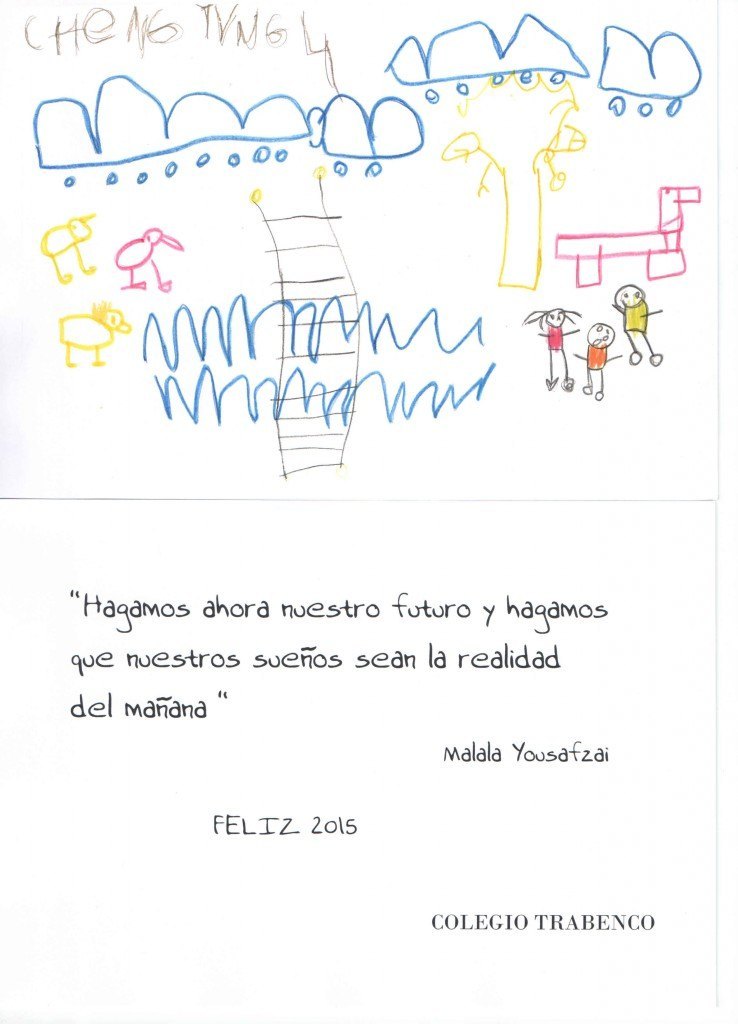 CHENG TUNG LY
"Hagamos ahora nuestro futuro y hagamos
que nuestros sueños sean la realidad
del mañana "
Malala Yousafzai
FELIZ 2015
COLEGIO TRABENCO